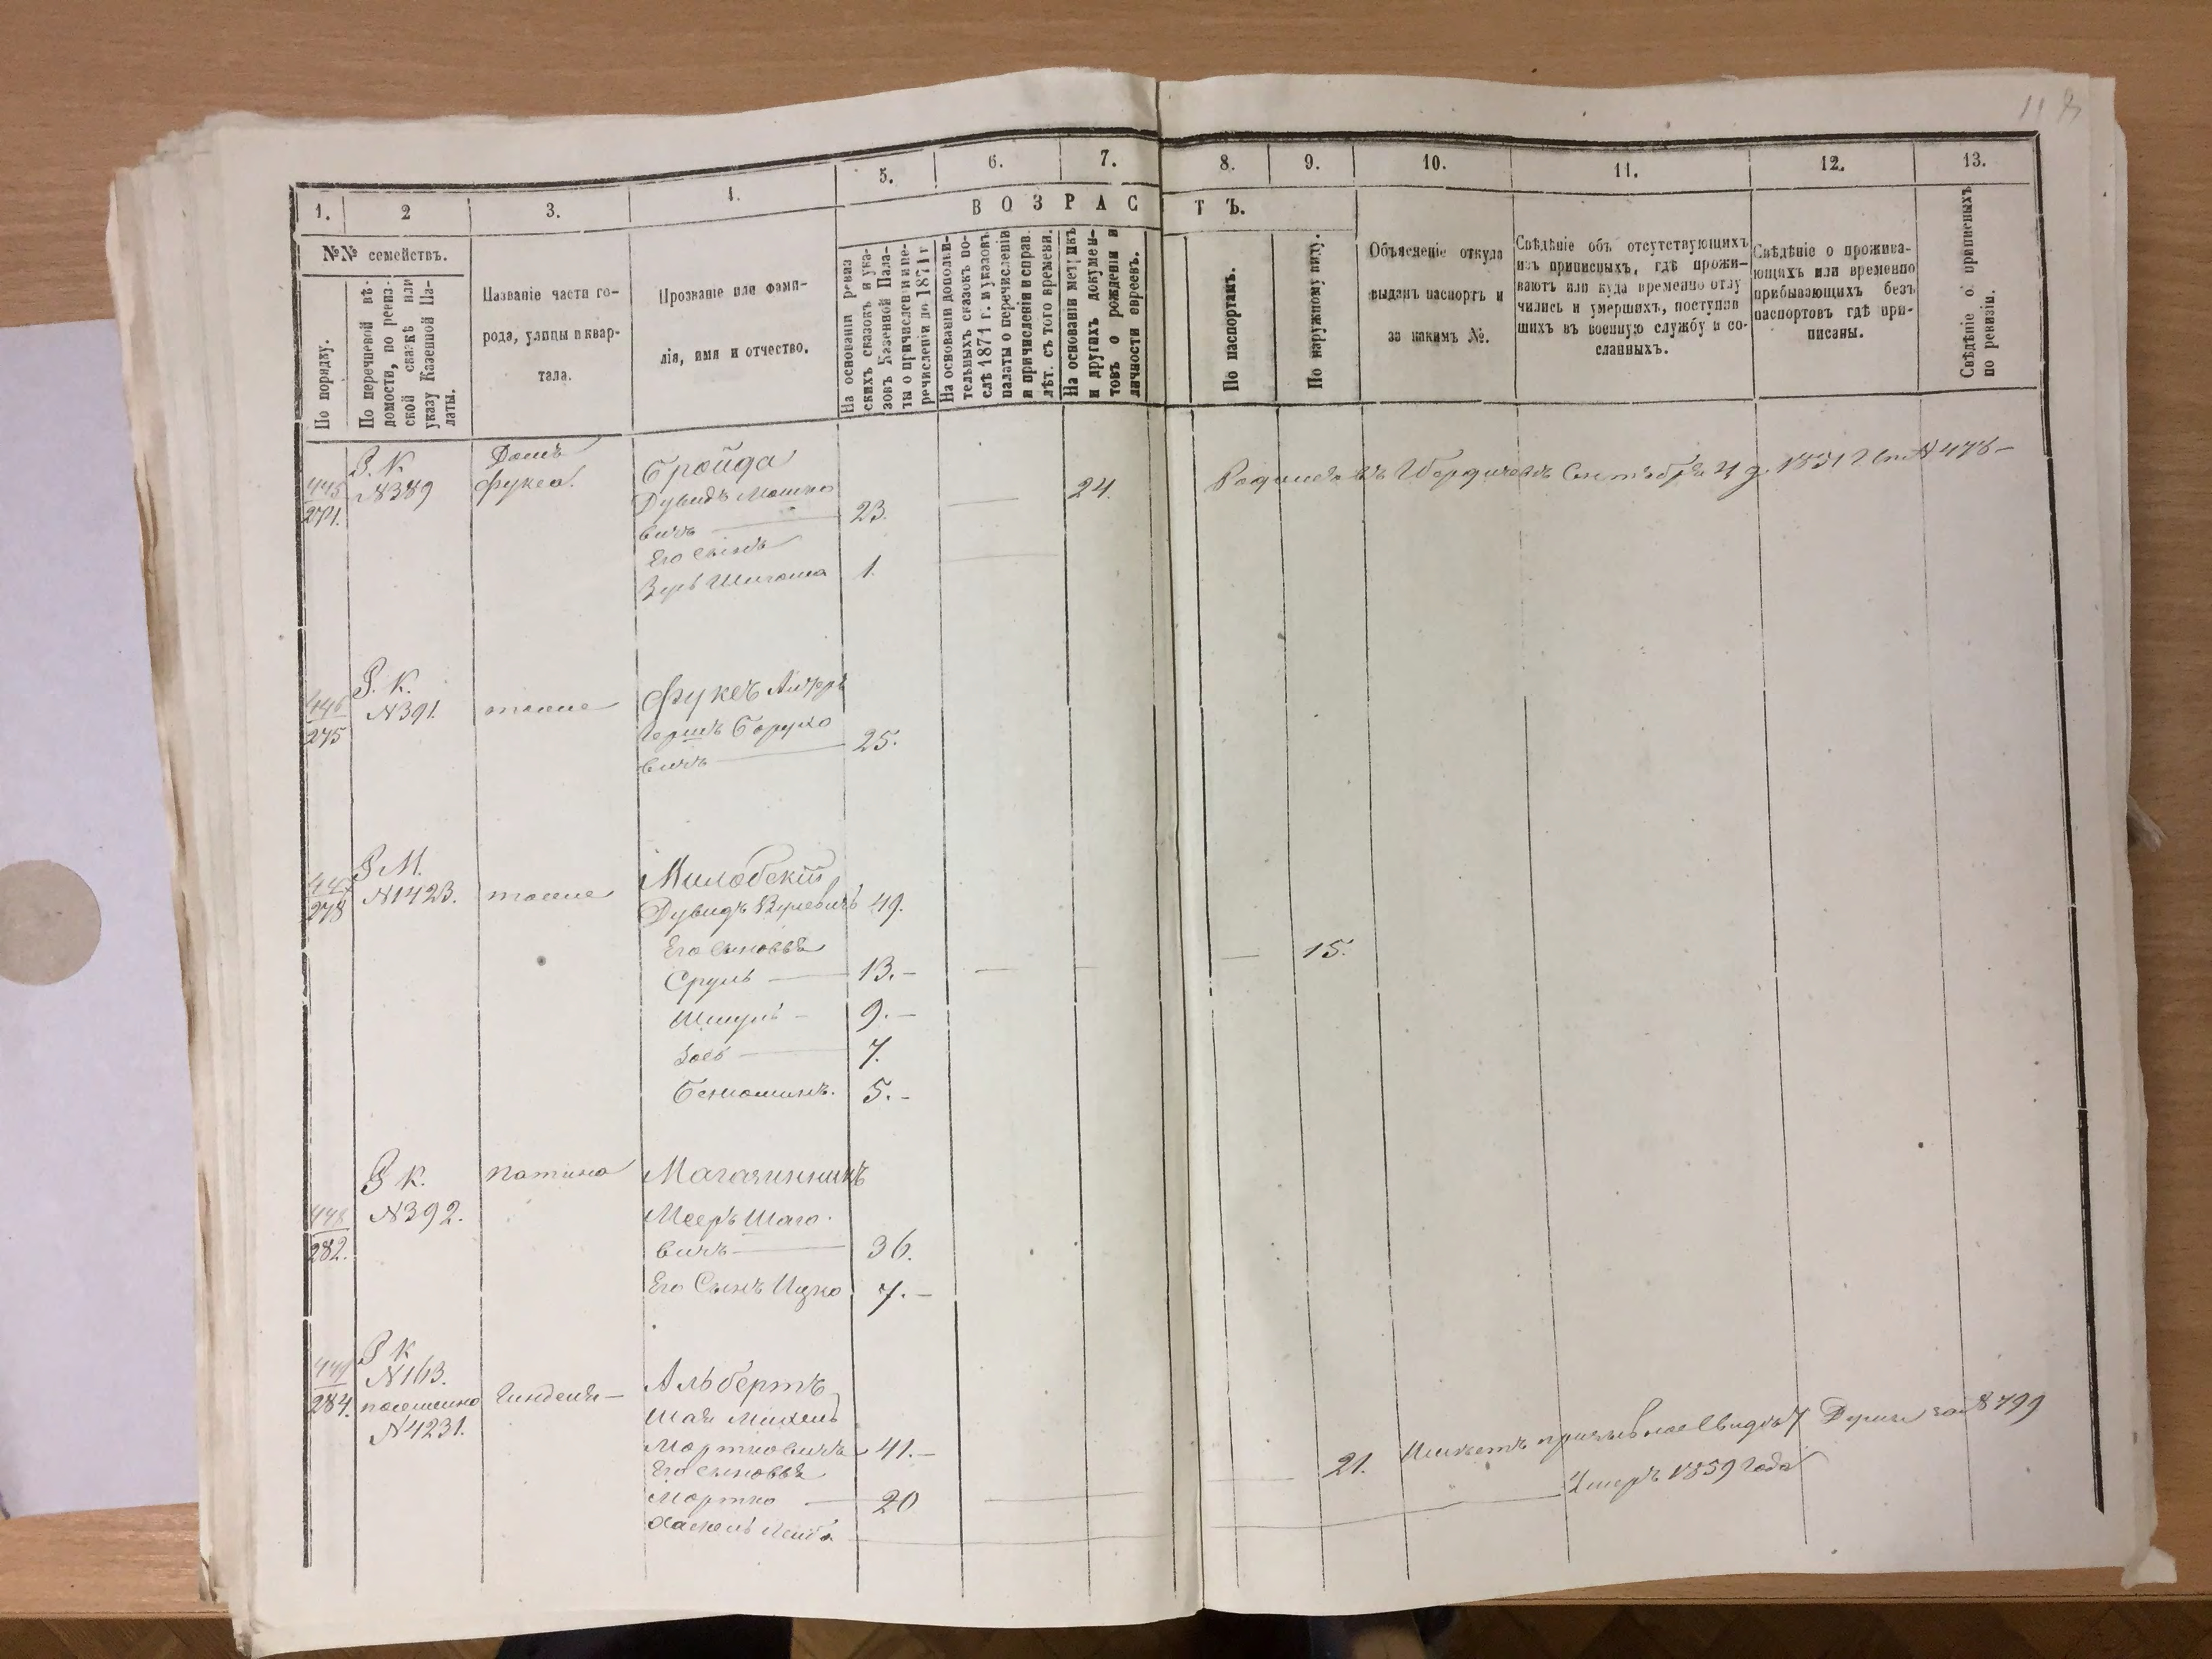 1.
2
3.
4.
5.
6.
7.
8.
9.
10.
11.
12.
13.
№№ семействъ.
По порядку.
По перечневой вѣ-
домости, по ревиз-
ской сказкѣ или
указу Казенной Па-
латы.
Названіе части го-
рода, улицы и квар-
тала.
Прозваніе или фами-
лія, имя и отчество.
ВОЗРАСТЪ.
На основаніи ревиз
скихъ сказокъ и ука-
зовъ Казенной Пала-
ты о причисленіи и пе-
речисленіи до 1871 г
На основаніи дополни-
тельныхъ сказокъ по-
слѣ 1871 г. и указовъ
палаты о перечисленіи
и причисленіи и справ.
лѣт. съ того времени.
На основаніи метрикъ
и другихъ докумен-
товъ о рожденіи и
личности евреевъ.
По паспортамъ.
По наружному виду.
Объясненіе откуда
выданъ паспортъ и
за какимъ №.
Свѣдѣніе объ отсутствующихъ
изъ приписныхъ, гдѣ прожи-
ваютъ или куда временно отлу
чились и умершихъ, поступив
шихъ въ военную службу и со-
сланныхъ.
Свѣдѣніе о прожива-
ющихъ или временно
прибывающихъ безъ
паспортовъ гдѣ при-
писаны.
Свѣдѣніе о приписныхъ
по ревизіи.
445
274.
Р. К.
№389
Домъ
Фукса.
Бройда
Дувидъ Мошко
вичъ 23. 24.
Его сынъ
1.
Родился въ Бердичевѣ Сентября 21 д. 1851 №478
446
275
Р. К.
№391.
тоже
Фуксъ
Гершъ Борухо
вичъ 25.
447
278
Р М.
№1423.
тоже
Милобскій
Дувидъ 49.
Его сыновья
Сруль 13. 15.
Шмуль 9.
7.
Бенюминъ. 5.
448
282.
Р К.
№392.
Магазинникъ
Мееръ
вичъ 36.
Его Сынъ Ицко 7.
449
284.
Р К
№163.
№4231.
Альбертъ
Шая Михель
Мортковичъ 41.
Его сыновья
Мортко 20 21.
Хаскель Лейба
Имѣетъ призывное 8799
Умеръ 1859 года